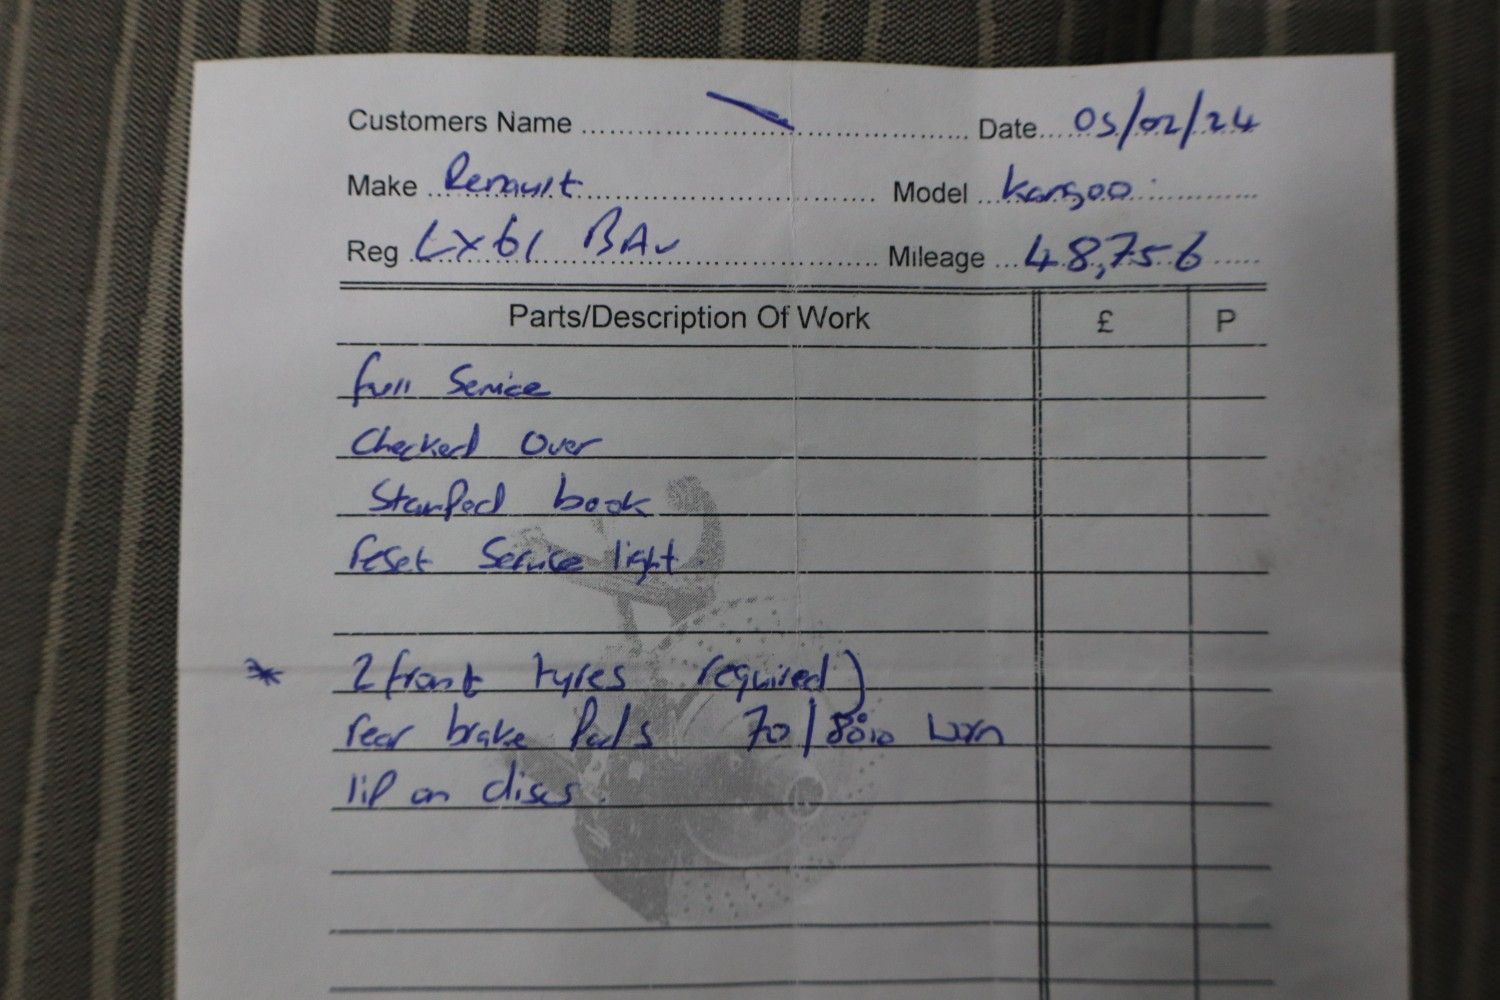 Customers Name Date 05/02/24
Make Renault Model Kangoo
Reg LX61 BAV Mileage 48,756
Parts/Description Of Work £ P
full Service
Checked Over
Stamped book
reset Service light
* 2 front tyres required)
rear brake Pads 70/80% worn
lip on discs.